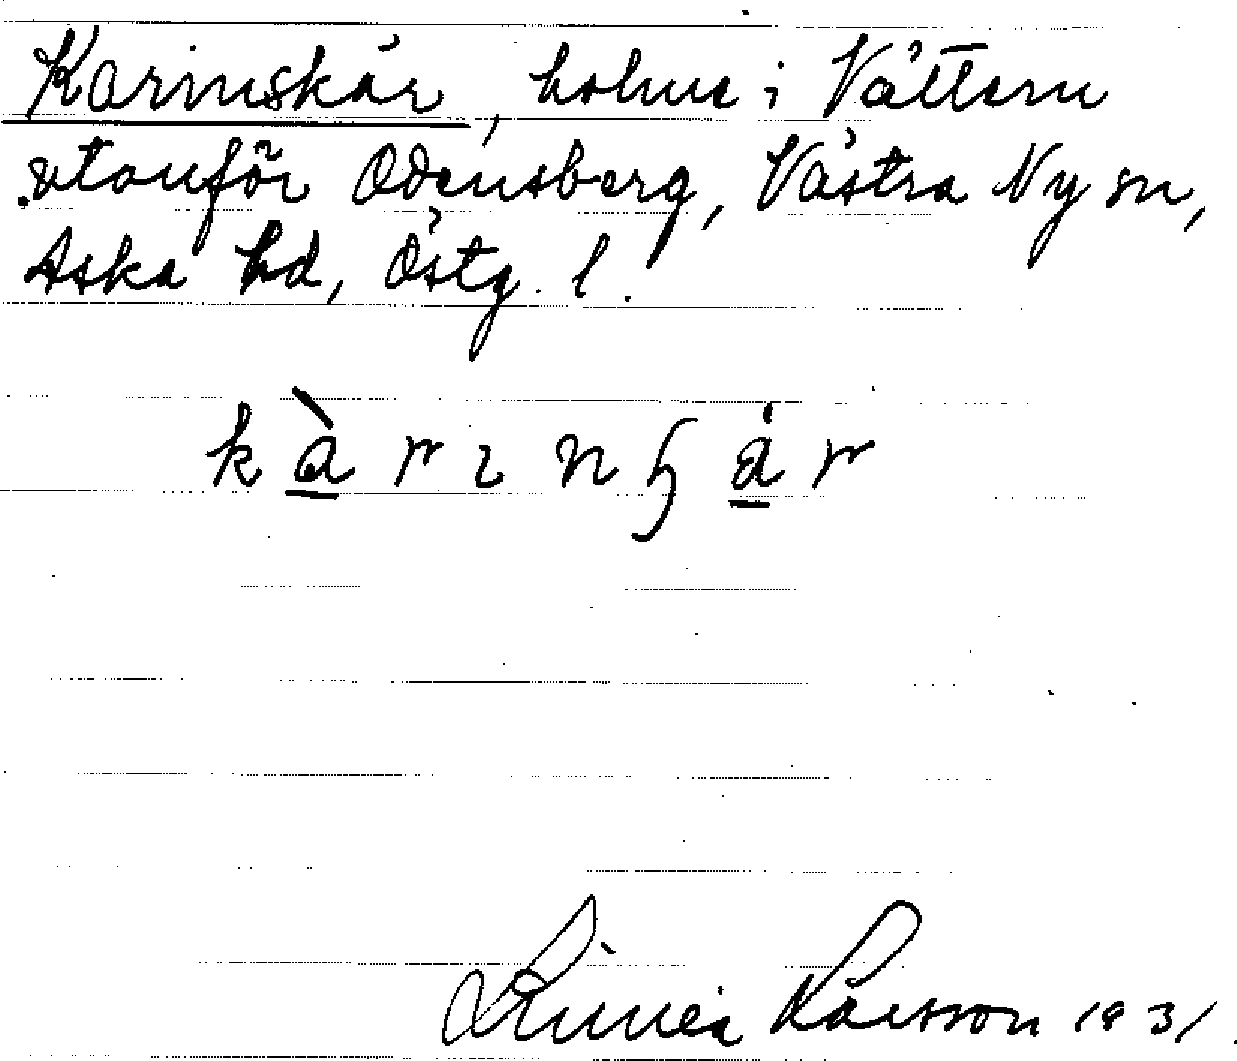 Karinsskär, holme i Vättern
utanför Odensberg, Västra Ny sn,
Aska hd, Östg. l.
Linnéa Larsson 1931.